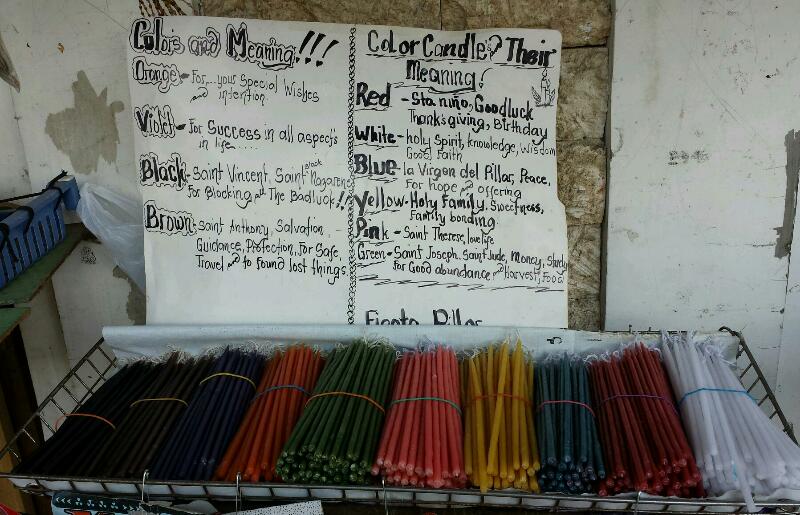 Colors and Meaning!!!
Orange - For... your Special Wishes
intention
Violet - For Success in all aspects
in life.....
Black - Saint Vincent, Saint black Nazarene
For Blocking The Badluck!!
Brown - Saint Anthony, Salvation
Guidance, Protection, For Safe,
Travel to found lost things.
Color Candle? Their
Meaning!
Red - Sta niño, Goodluck
Thanksgiving, Birthday
White - holy Spirit, knowledge, Wisdom
Good Faith
Blue - la Virgen del Pillar, Peace,
For hope offering
Yellow - Holy Family, Sweetness,
Family bonding.
Pink - Saint Therese, lovelife
Green - Saint Joseph, Saint Jude, Money, Study
for Good abundance Harvest, Food